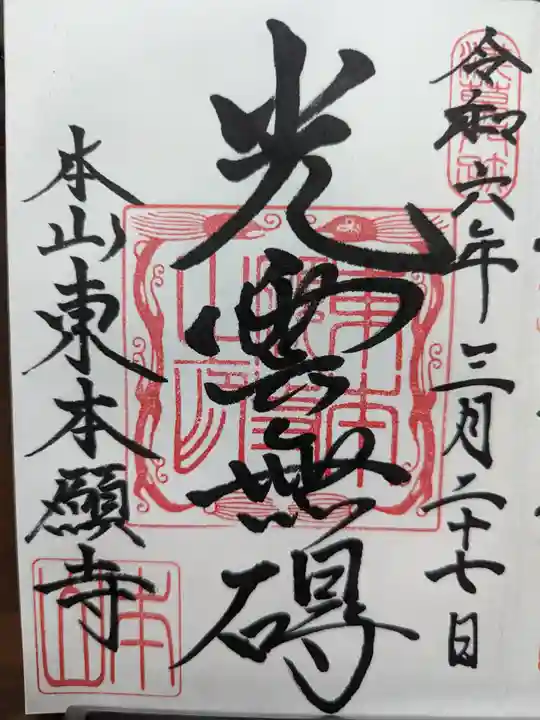 令和六年三月二十七日
光雲無碍
本山東本願寺
本山